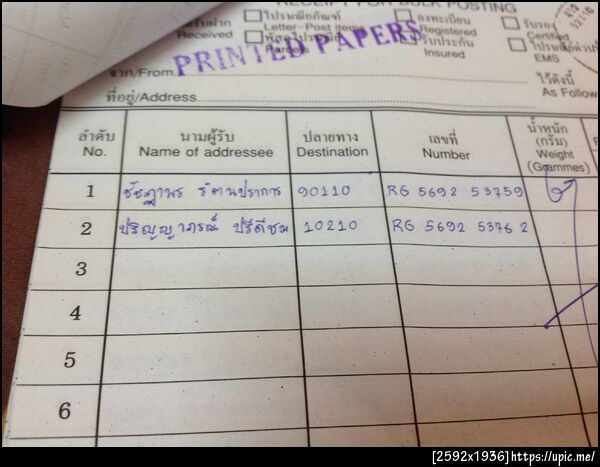 RECEIPT FOR BULK POSTING
รับฝาก ไปรษณียภัณฑ์ ลงทะเบียน รับรอง
Received Letter-Post items Registered Certified
พัสดุไปรษณีย์ รับประกัน
Parcels Insured EMS
PRINTED PAPERS
จาก/From ไว้ดังนี้
ที่อยู่/Address As Follow
ลำดับ นามผู้รับ ปลายทาง เลขที่ น้ำหนัก
No. Name of addressee Destination Number (กรัม)
Weight
(Grammes)
1 รัตนปราการ 90110 RG 5692 53759
2 ปริญญาภรณ์ ปรีดีชม 10210 RG 5692 5376 2
3
4
5
6
[2592x1936]https://upic.me/